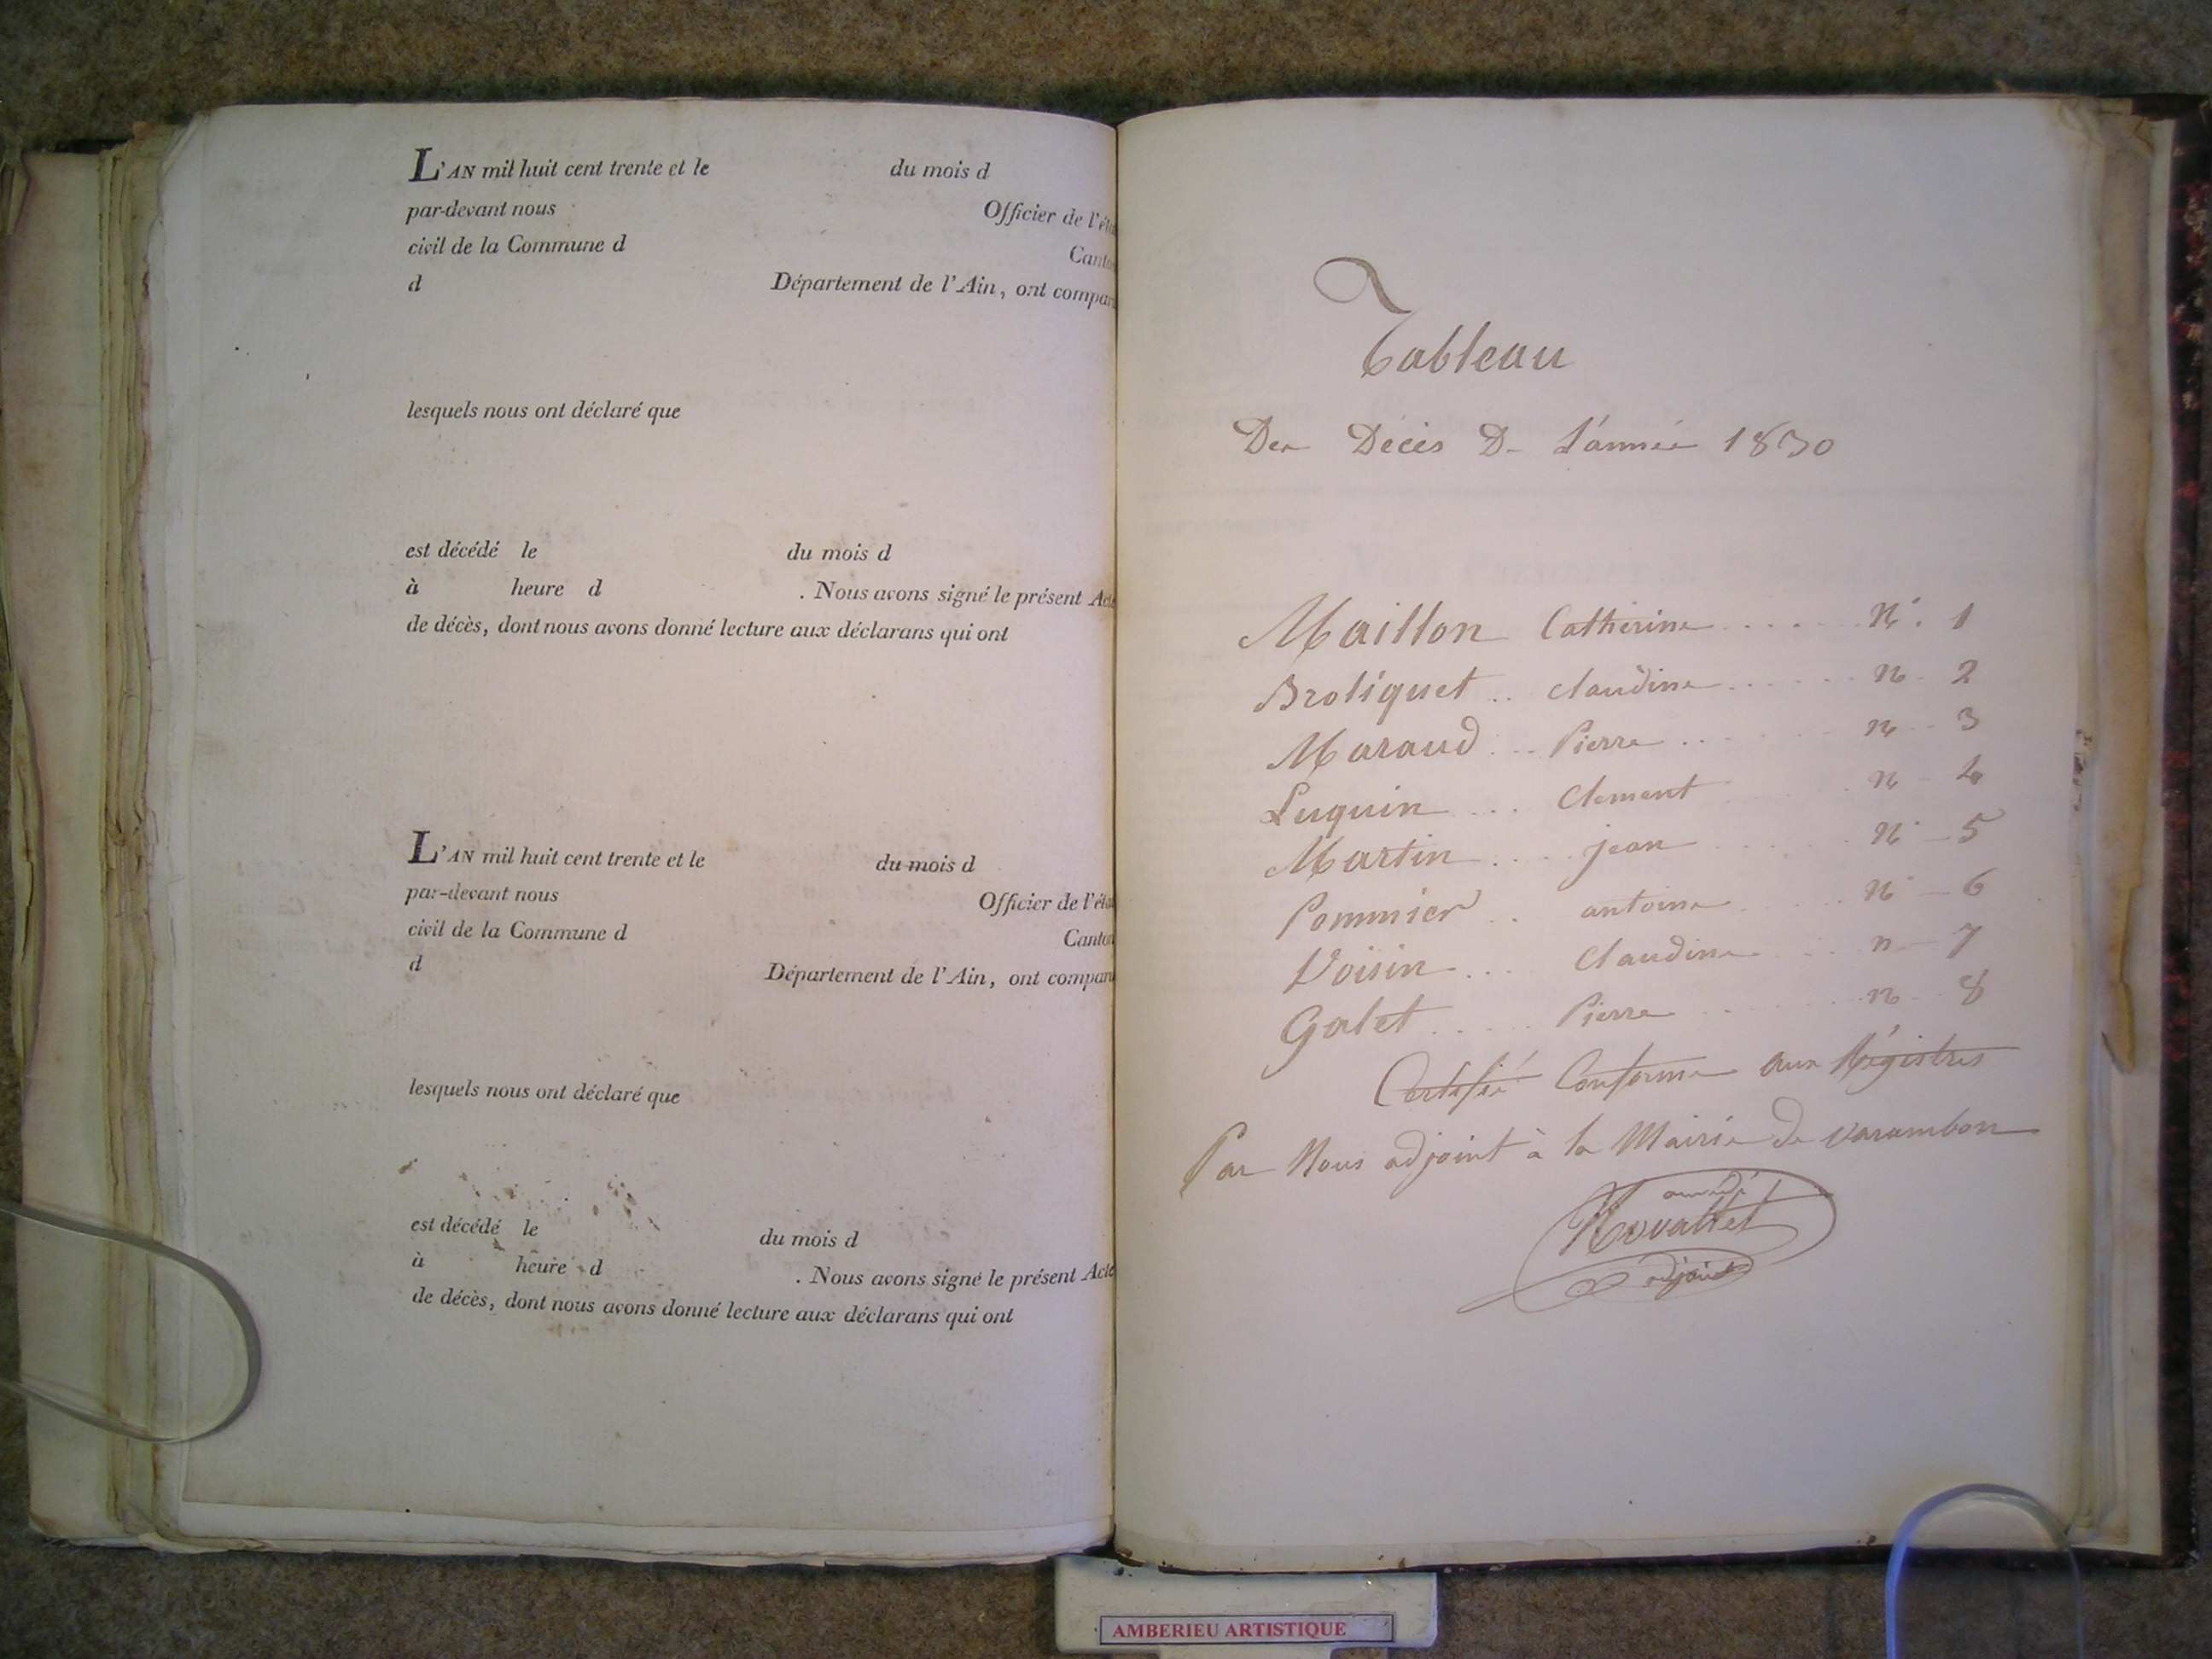 L'AN mil huit cent trente et le du mois d
par-devant nous Officier de l'éta
civil de la Commune d Canto
d Département de l'Ain, ont compar
lesquels nous ont déclaré que
est décédé le du mois d
à heure d . Nous avons signé le présent Acte
de décès, dont nous avons donné lecture aux déclarans qui ont
L'AN mil huit cent trente et le du mois d
par-devant nous Officier de l'éta
civil de la Commune d Canton
d Département de l'Ain, ont compar
lesquels nous ont déclaré que
est décédé le du mois d
à heure d . Nous avons signé le présent Acte
de décès, dont nous avons donné lecture aux déclarans qui ont
Tableau
Des Décès De L'année 1830
Maillon Catherine ..... n°. 1
Broliquet .. claudine ..... n° 2
Maraud ... Pierre ..... n° 3
Luquin ... Clement ..... n° 4
Martin .... jean ..... n° 5
Pommier .. antoine ..... n° 6
Voisin ... Claudine ... n° 7
Galet ..... Pierre ..... n° 8
Certifié Conforme aux Régistres
Par Nous adjoint à la Mairie de varambon
adjoint
AMBERIEU ARTISTIQUE